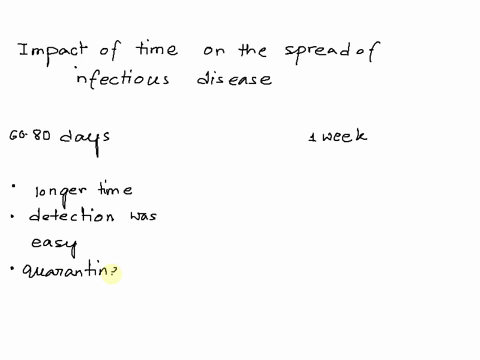 Impact of time on the spread of
infectious disease
60-80 days 1 week
• longer time
• detection was
easy
• quarantin